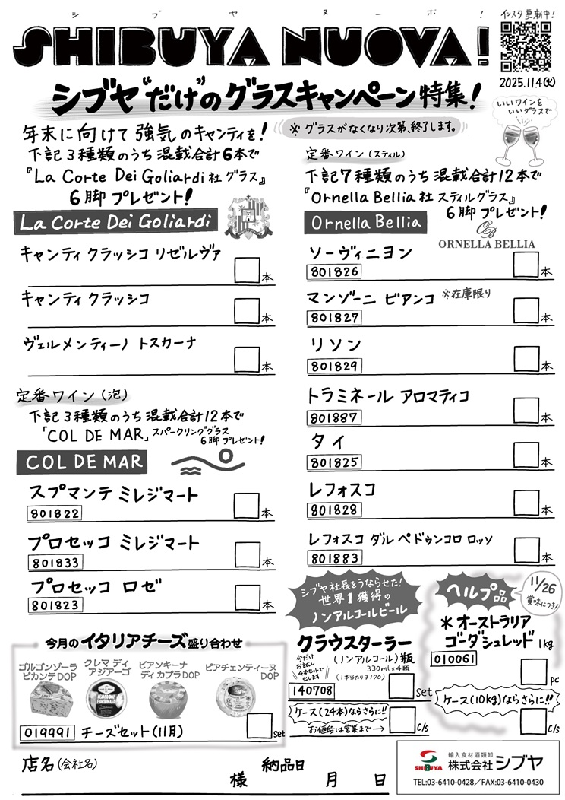 シブヤヌーボ!
SHIBUYA NUOVA!
インスタ更新中!
2025.11.4(火)
シブヤ"だけ"のグラスキャンペーン特集!
いいワインを
いいグラスで
年末に向けて強気のキャンティを!
※グラスがなくなり次第、終了します。
下記3種類のうち混載合計6本で
『La Corte Dei Goliardi社グラス』
6脚プレゼント!
La Corte Dei Goliardi
キャンティ クラッシコ リゼルヴァ
本
キャンティ クラッシコ
本
ヴェルメンティーノ トスカーナ
本
定番ワイン(泡)
下記3種類のうち混載合計12本で
「COL DE MAR」スパークリンググラス
6脚プレゼント!
COL DE MAR
スプマンテ ミレジマート
801822
本
プロセッコ ミレジマート
801833
本
プロセッコ ロゼ
801823
本
定番ワイン(スティル)
下記7種類のうち混載合計12本で
『Ornella Bellia社 スティルグラス』
6脚プレゼント!
Ornella Bellia
ORNELLA BELLIA
ソーヴィニヨン
801826
本
マンゾーニ ビアンコ ※在庫限り
801827
本
リソン
801829
本
トラミネール アロマティコ
801887
本
タイ
801825
本
レフォスコ
801828
本
レフォスコ ダル ペドゥンコロ ロッソ
801883
本
今月のイタリアチーズ盛り合わせ
ゴルゴンゾーラ
ピカンテDOP
クレマ ディ
アジアーゴ
ビアンキーナ
ディカプラDOP
ピアチェンティーヌ
DOP
019991 チーズセット(11月)
set
シブヤ社長をうならせた!
世界1獲得の
ノンアルコールビール
クラウスターラー
(ノンアルコール)瓶
330ml×4瓶
140708
set
ケース(24本)ならさらに!!
c/s
ヘルプ品
11/26
賞味につき
*オーストラリア
ゴーダシュレッド 1kg
010061
pc
ケース(10kg)ならさらに!!
c/s
店名(会社名)
様
納品日
月 日
輸入食品酒類卸
SHIBUYA
株式会社シブヤ
TEL:03-6410-0428/FAX:03-6410-0430